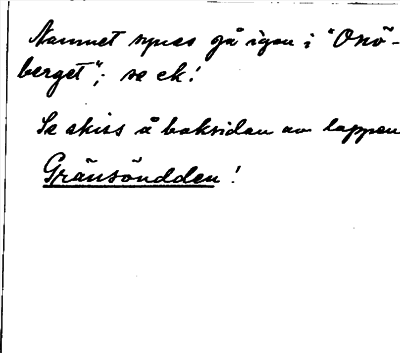 Namnet synes gå igen i "Onö-
berget"; se ek!
Se skiss å baksidan av lappen
Gränsöudden!